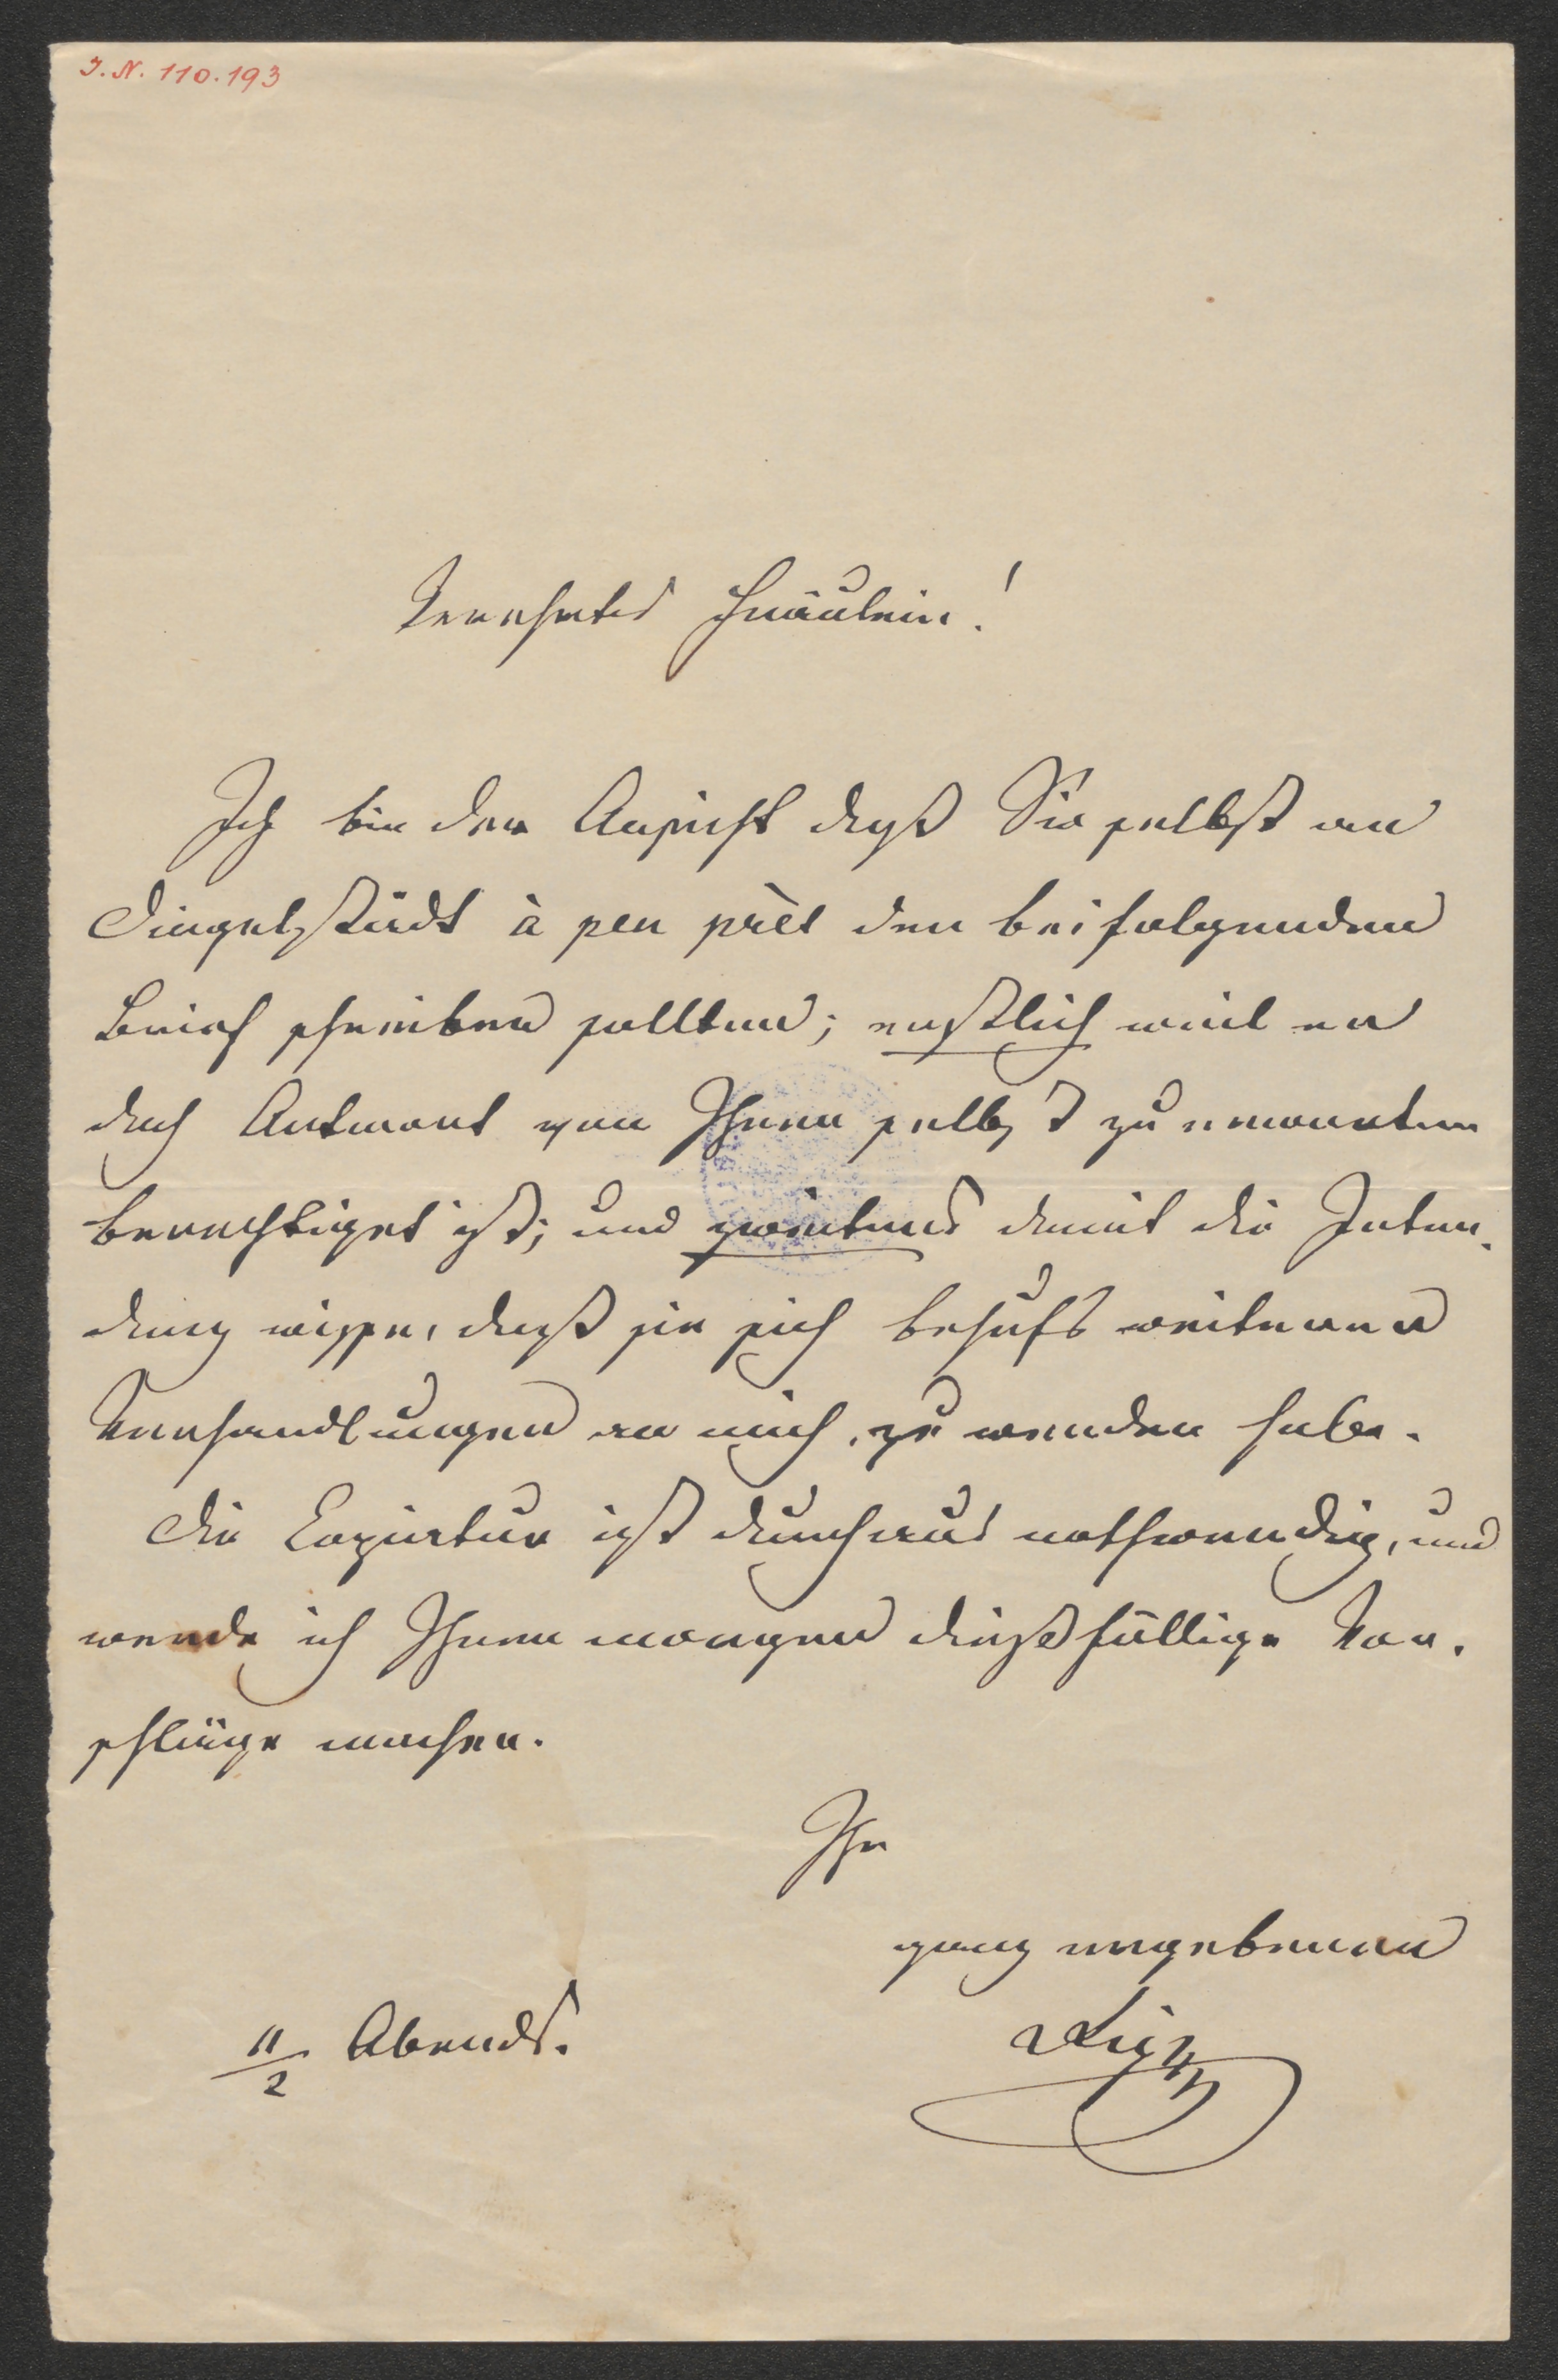 I. N. 110.193
Verehrtes Fräulein!
Ich bin der Ansicht daß Sie selbst an
Dingelstädt à peu près den beifolgenden
Brief schreiben sollten; erstlich weil er
doch Antwort von Ihnen selbst zu erwarten
berechtiget ist; und zweitens damit die Inten-
danz wisse, daß sie sich behufs weiterer
Verhandlungen an mich zu wenden habe.
Die ist durchaus nothwendig, und
werde ich Ihnen morgen dießfällige Vor-
schläge machen.
Ihr
ganz ergebener
11/2 Abends.